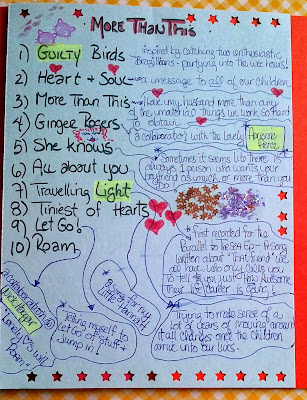 More Than This
1) Guilty Birds
inspired by catching two enthusiastic
Brazilians - partying into the wee hours!
2) Heart + Soul
a message to all of our children
3) More Than This
I love my husband more than any
of the material things we work so hard
to obtain
4) Ginger Rogers
a collaboration with the lovely
Fierce
5) She knows
Sometimes it seems like there is
always 1 person who wants your
boyfriend as much, or more than you
do
6) All about you
7) Travelling Light
8) Tiniest of Hearts
9) Let Go!
10) Roam
First recorded for the
Parallel to the Sea EP - the song
written about "that friend" we
all have who only calls you
to tell you just how Awesome
their career is going!
a song for my
little
a collaboration
"Lonely will
Roam"
Telling myself to
Let Go of stuff +
Jump in!
Trying to make sense of a
lot of years of moving around
it all changes once the children
arrive into our lives.